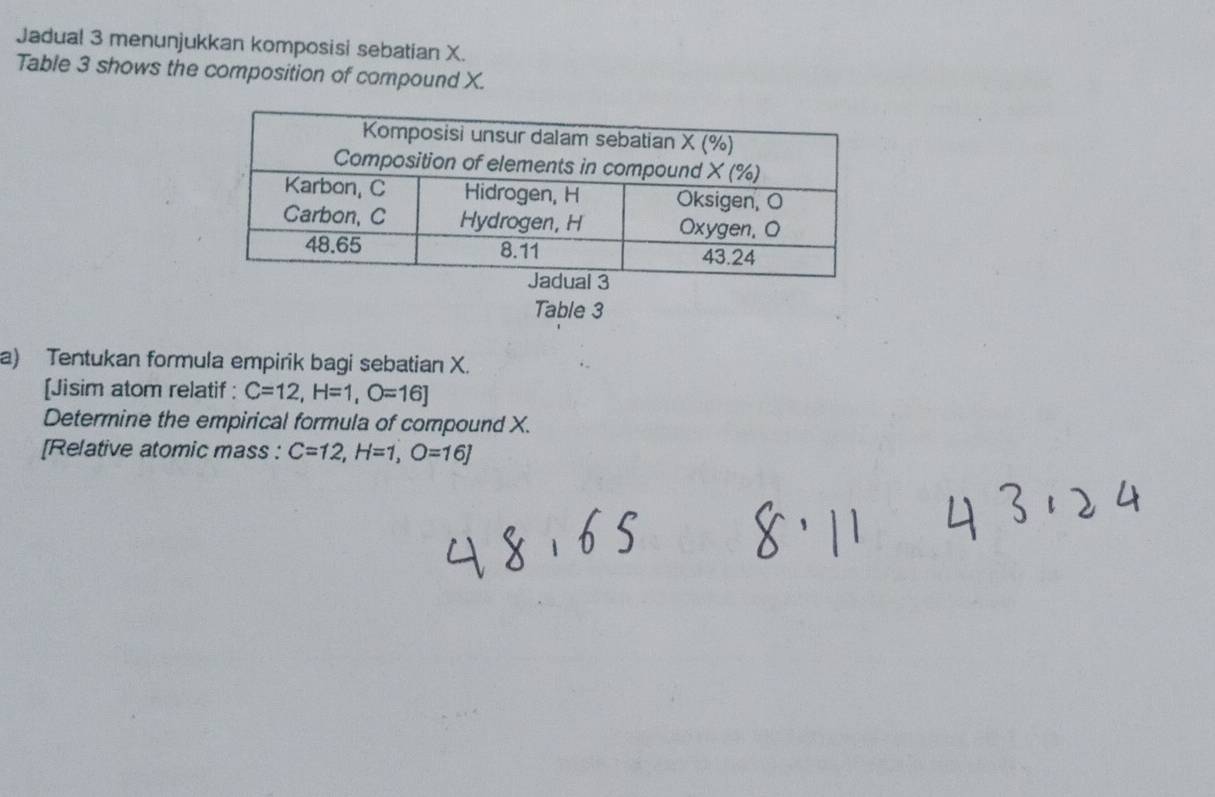 Jadual 3 menunjukkan komposisi sebatian X.
Table 3 shows the composition of compound X.
Komposisi unsur dalam sebatian X (%)
Composition of elements in compound X (%)
Karbon, C Hidrogen, H Oksigen, O
Carbon, C Hydrogen, H Oxygen, O
48.65 8.11 43.24
Jadual 3
Table 3
a) Tentukan formula empirik bagi sebatian X.
[Jisim atom relatif : C=12, H=1, O=16]
Determine the empirical formula of compound X.
[Relative atomic mass : C=12, H=1, O=16]
48.65 8.11 43.24